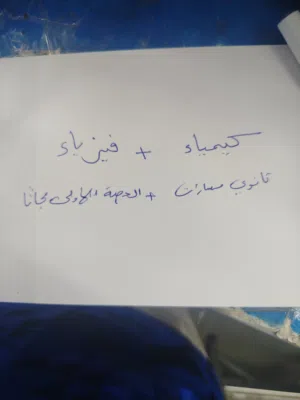 كيمياء + فيزياء
ثانوي مسارات + الحصة الاولى مجانا